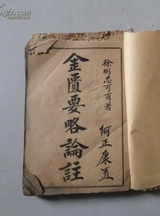 徐彬忠可甫著
金匱要略論註
何正康